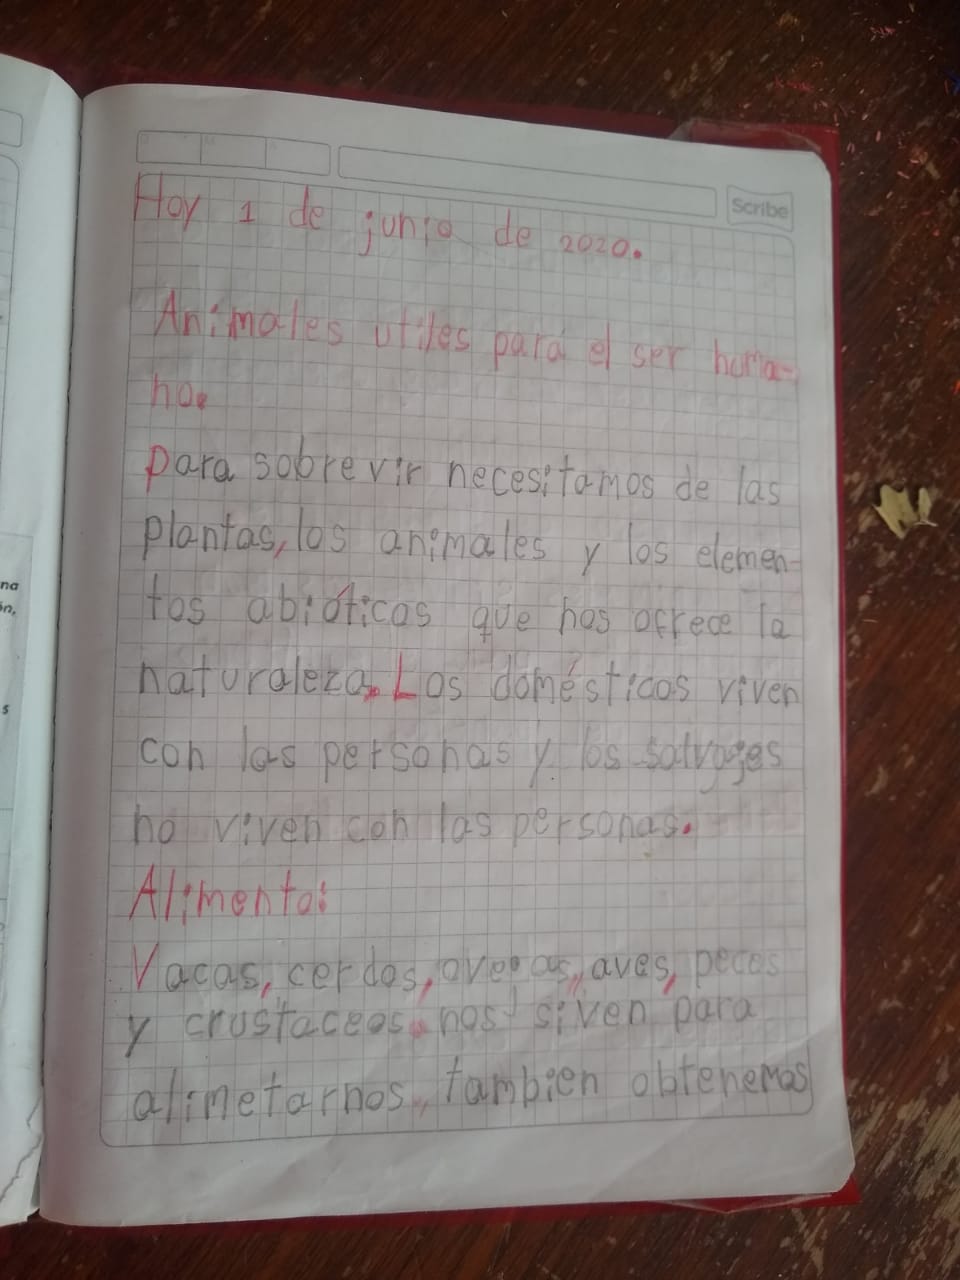 Scribe
Hoy 1 de junio de 2020.
Animales utiles para el ser huma-
no.
para sobrevir necesitamos de las
plantas, los animales y los elemen-
tos abióticos que nos ofrece la
naturaleza. Los domésticos viven
con las personas y los salvages
no viven con las personas.
Alimento:
Vacas, cerdos, ovejas, aves, peces
y crustaceos nos siven para
alimetarnos, tambien obtenemos
na
ón,
s